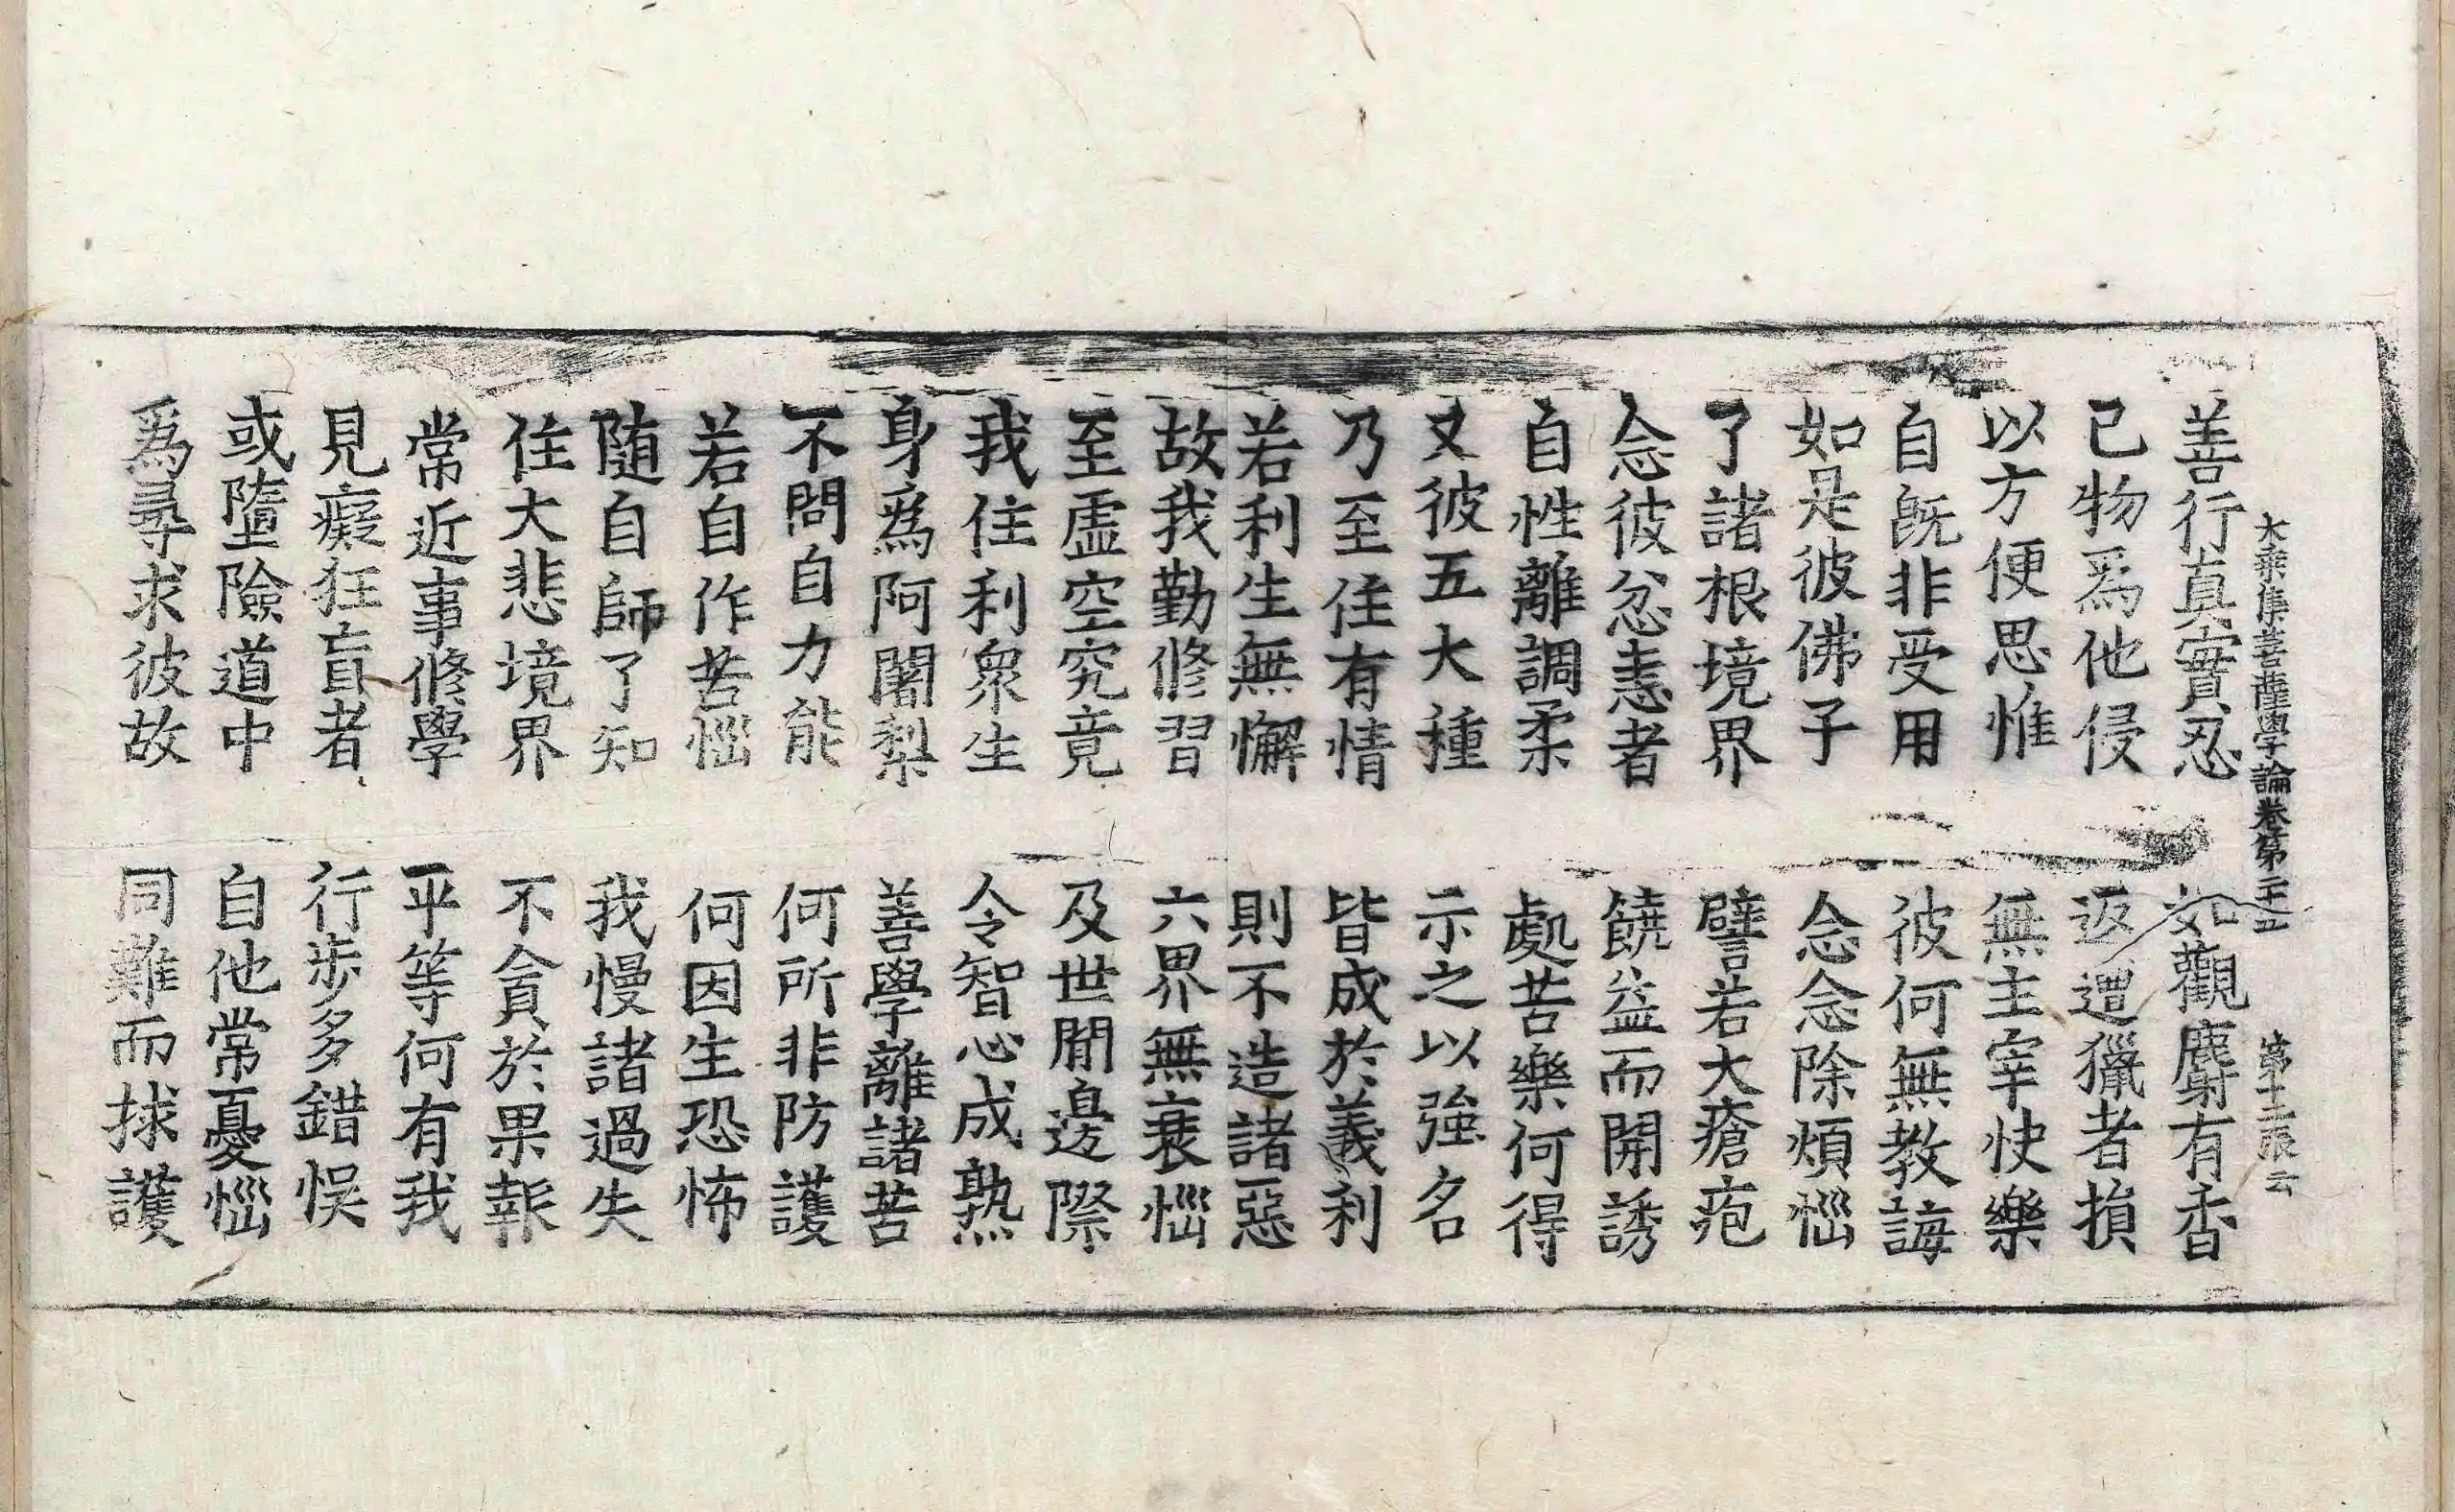 大乘集菩薩學論卷第二十五　第十二張　云
善行真實忍　如觀麝有香
己物爲他侵　返遭獵者損
以方便思惟　無主宰快樂
自旣非受用　彼何無教誨
如是彼佛子　念念除煩惱
了諸根境界　譬若大瘡疱
念彼忿恚者　饒益而開誘
自性離調柔　處苦樂何得
又彼五大種　示之以強名
乃至住有情　皆成於義利
若利生無懈　則不造諸惡
故我勤修習　六界無衰惱
至虛空究竟　及世間邊際
我住利衆生　令智心成熟
身爲阿闍梨　善學離諸苦
不問自力能　何所非防護
若自作苦惱　何因生恐怖
隨自師了知　我慢諸過失
住大悲境界　不貪於果報
常近事修學　平等何有我
見癡狂盲者　行步多錯悞
或墮險道中　自他常憂惱
爲尋求彼故　同難而捄護